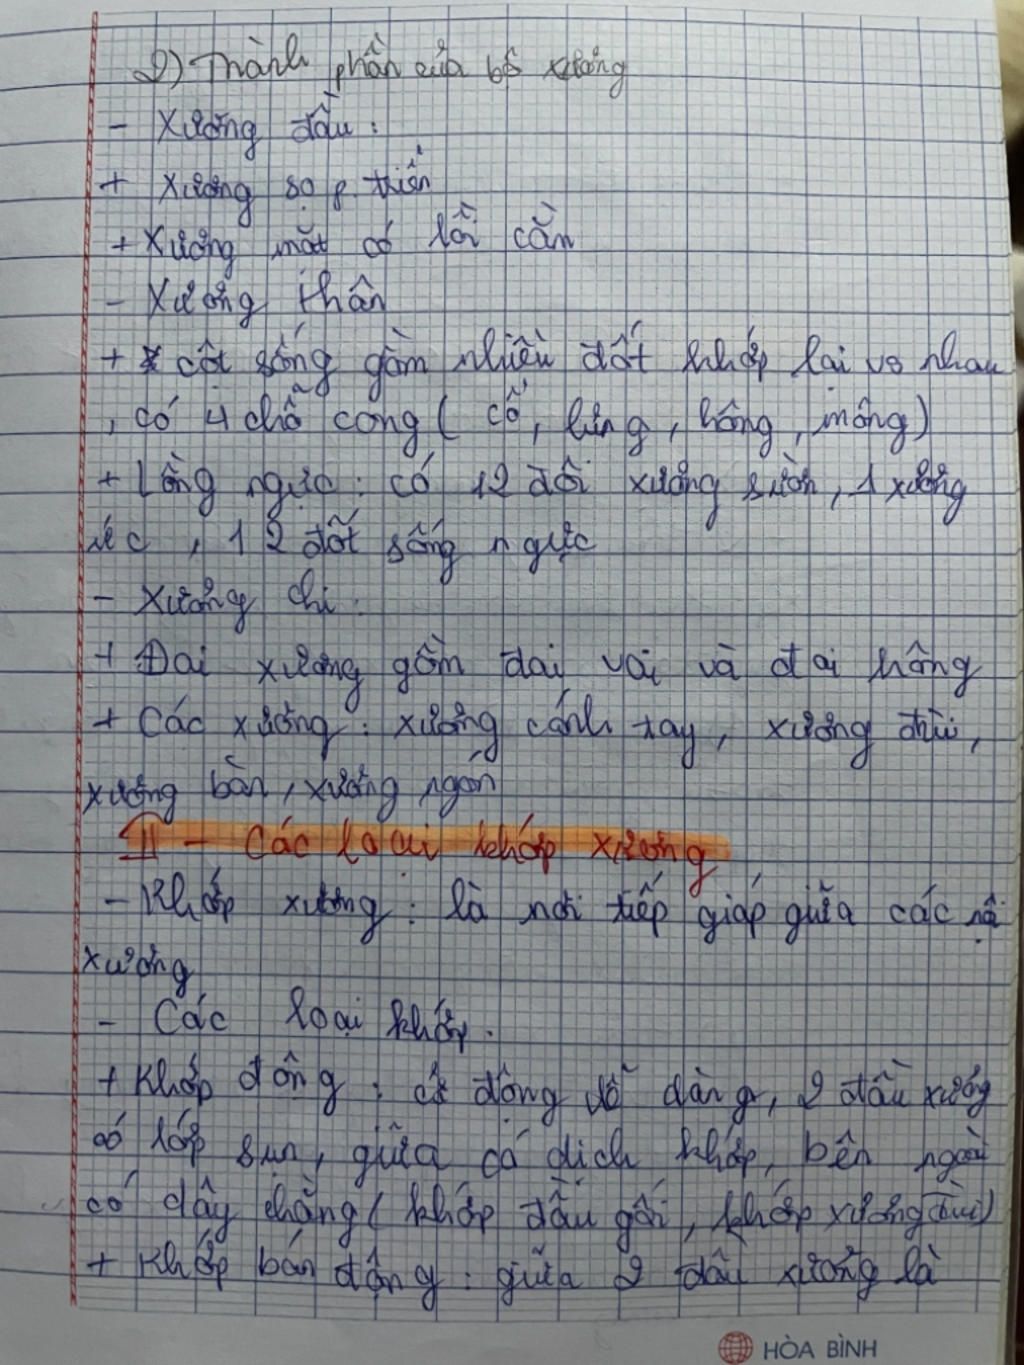 2) Thành phần của bộ xương
- Xương đầu :
+ Xương sọ p. triển
+ Xương mặt có lồi cằm
- Xương thân
+ cột sống gồm nhiều đốt khớp lại vs nhau
, có 4 chỗ cong ( cổ, lưng, hông, mông)
+ Lồng ngực : có 12 đôi xương sườn, 1 xương
ức , 12 đốt sống ngực
- Xương chi :
+ Đai xương gồm đai vai và đai hông
+ Các xương : xương cánh tay, xương đùi,
xương bàn, xương ngón
II - Các loại khớp xương
- Khớp xương : là nơi tiếp giáp giữa các
xương
- Các loại khớp.
+ Khớp động : cử động dễ dàng, 2 đầu xương
có lớp sụn, giữa có dịch khớp, bên ngoài
có dây chằng ( khớp đầu gối, khớp xương đùi)
+ Khớp bán động : giữa 2 đầu xương là
HÒA BÌNH